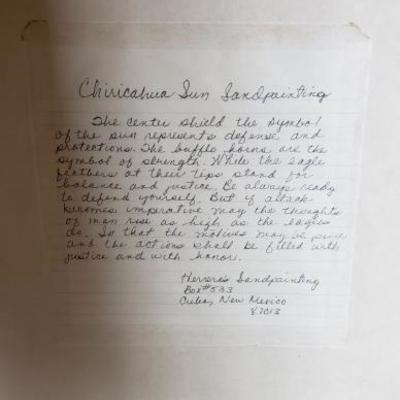 Chiricahua Sun Sandpainting
The center shield the symbol
of the sun represents defense and
protections. The bufflo horns are the
symbol of strength. While the eagle
feathers at their tips stand for
balance and justice. Be always ready
to defend yourself. But if attack
becomes imperative may the thoughts
of man rise as high as the eagles
do. So that the motives may be pure
and the actions shall be filled with
justice and with honor.
Herrera's Sandpainting
Box #533
Cuba, New Mexico
87013